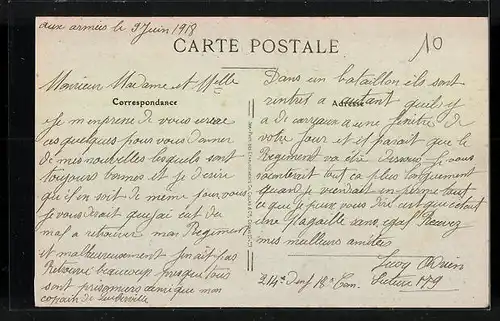 aux armées le 9 Juin 1918
10
CARTE POSTALE
Correspondance
Adresse
Monsieur Madame et Melle
Je m'enprene de vous
ces quelques pour vous donner
de mes nouvelles lesquels sont
toujours bonnes et je désire
qu'il en soit de meme pour vous
je vous dirait que j'ai eut du
mal a retrouver mon Regiment
et malheureusement
Retrouve beaucoup presque tous
sont prisonniers ainsi que mon
copain de Luneville
Dans un bataillon ils sont
rentres a autant quel y
a de carreaux a une fenetre de
votre four et il parait que le
Regiment va etre Je vous
raconterait tout ca plus longuement
quand je viendrait en perme tout
ce que je peux vous dire est que cetait
une pagaille sans egal Recevez
mes meilleurs amities
214e Inf 18e Con. Secteur 179